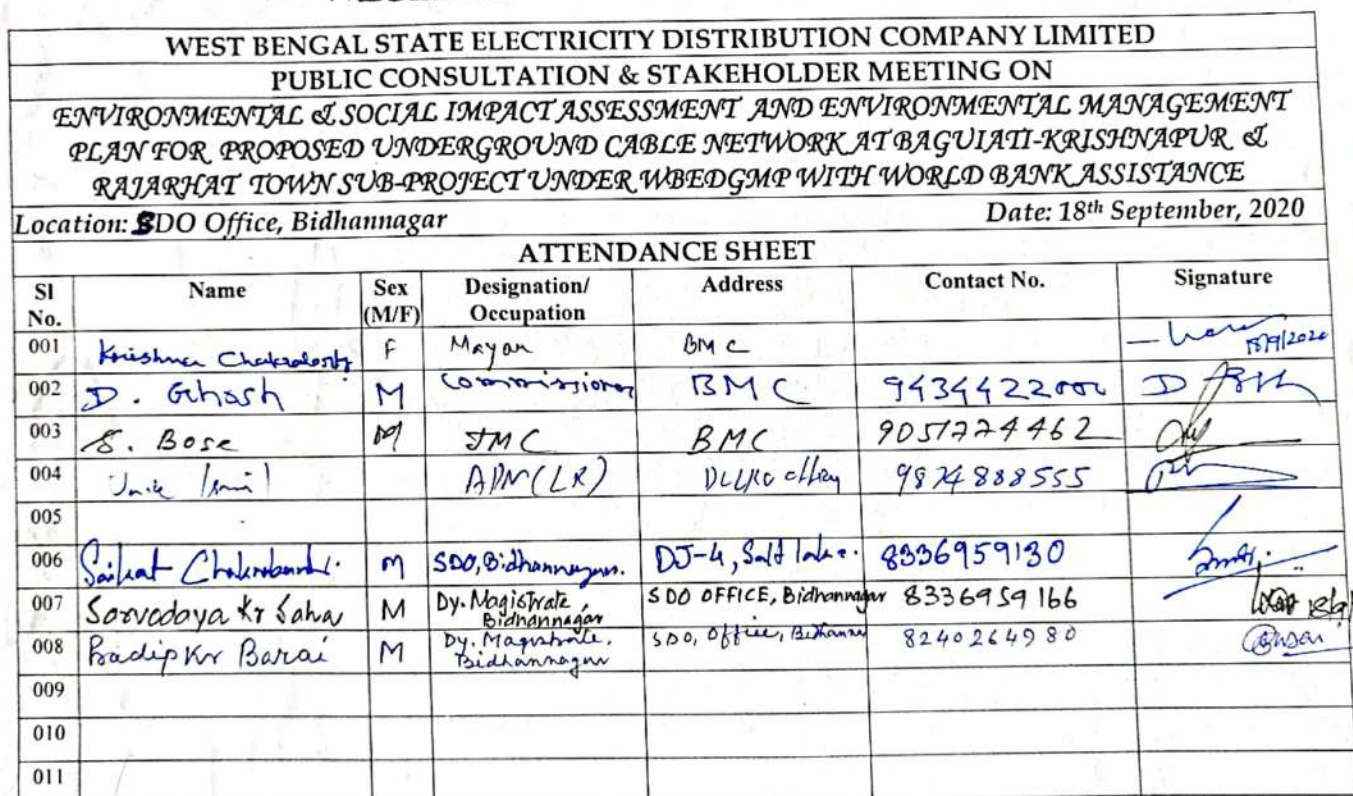 WEST BENGAL STATE ELECTRICITY DISTRIBUTION COMPANY LIMITED
PUBLIC CONSULTATION & STAKEHOLDER MEETING ON
ENVIRONMENTAL & SOCIAL IMPACT ASSESSMENT AND ENVIRONMENTAL MANAGEMENT
PLAN FOR PROPOSED UNDERGROUND CABLE NETWORK AT BAGUIATI-KRISHNAPUR &
RAJARHAT TOWN SUB-PROJECT UNDER WBEDGMP WITH WORLD BANK ASSISTANCE
Location: SDO Office, Bidhannagar Date: 18th September, 2020
ATTENDANCE SHEET
Sl No. Name Sex (M/F) Designation/ Occupation Address Contact No. Signature
001 Krishna Chakraborty F Mayor BMC 18/9/2020
002 D. Ghosh M Commissioner BMC D
003 S. Bose M JMC BMC 9051774462
004 ADM (LR) 9874888555
005
006 Saikat Chakrabarti. M SDO, Bidhannagar. DJ-4, Salt lake. 8336959130
007 Sarvodaya Kr Saha M Dy. Magistrate, Bidhannagar SDO OFFICE, Bidhannagar 8336959166
008 Pradip Kr Barai M Dy. Magistrate. Bidhannagar SDO, Office, 8240264980
009
010
011